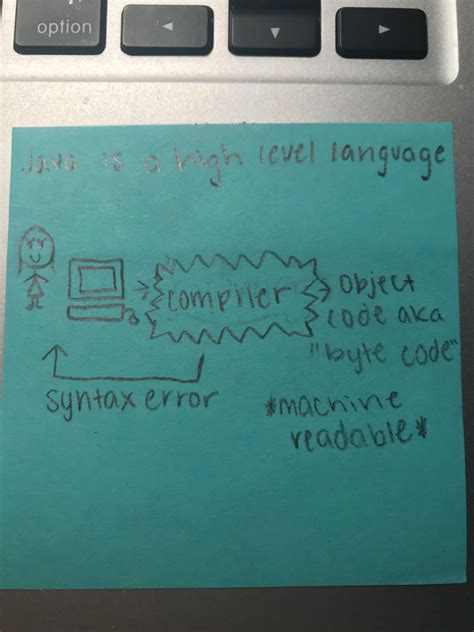 option
◄
▼
►
Java is a high level language
compiler
object
code aka
"byte code"
syntax error
*machine
readable*